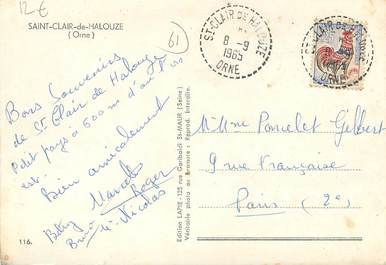 12€
SAINT-CLAIR-de-HALOUZE
(Orne)
61
ST-CLAIR DE HALOUZE
8-9
1965
ORNE
ST-CLAIR DE HALOUZE
1965
ORNE
Bons Souvenirs
de St Clair de Halouze
Petit pays à 600 m d'où l'on
est.
Bien amicalement
Marcel
Betty Roger
Nicolas
M. Mme Poncelet Gilbert
9 rue Française
Paris (2e)
Edition LAPIE - 125 rue Garibaldi St-MAUR (Seine)
Véritable photo au Bromure - Reprod. Interdite.
116.